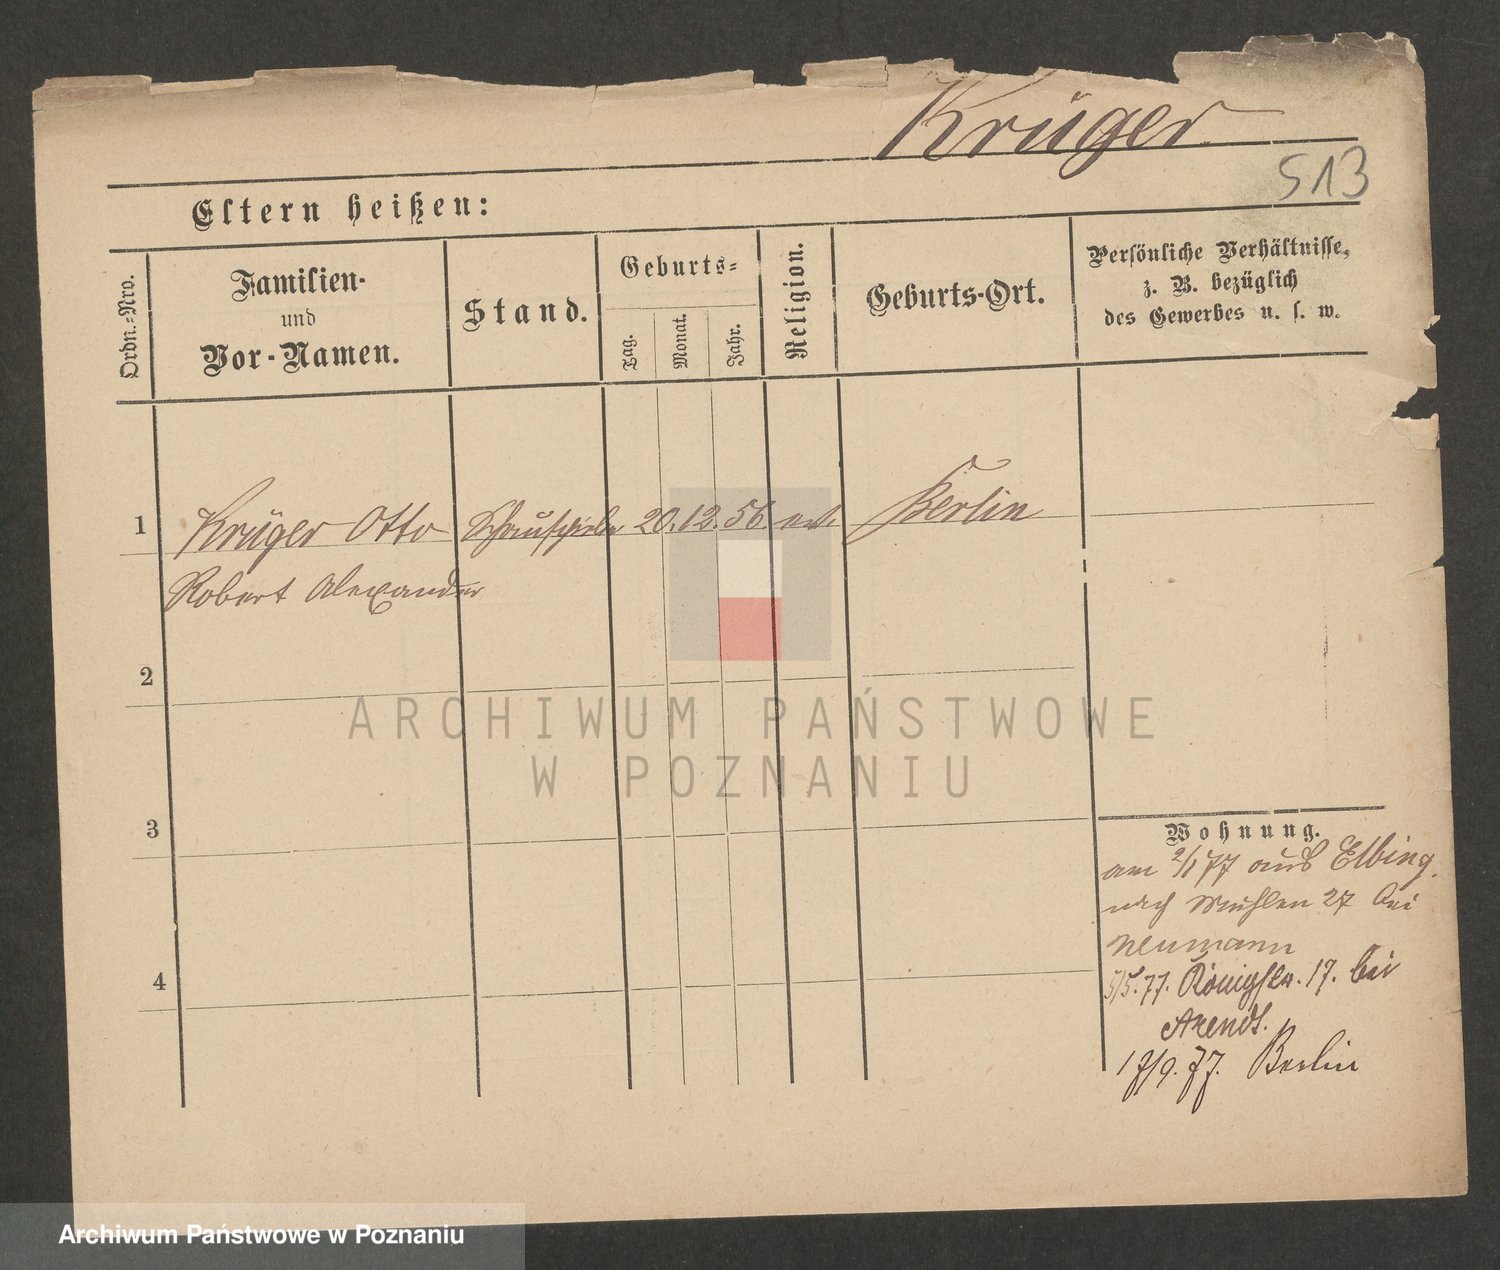 Krüger
513
Eltern heißen:
Ordn.-Nro.
Familien-
und
Vor-Namen.
Stand.
Geburts-
Tag.
Monat.
Jahr.
Religion.
Geburts-Ort.
Persönliche Verhältnisse,
z. B. bezüglich
des Gewerbes u. s. w.
1 Krüger Otto Schauspieler 20. 12. 56. ev. Berlin
Robert Alexander
2
3
4
Wohnung.
am 2/1 77 aus Elbing.
nach Mühlen 27 bei
Neumann
5/5. 77. Königstr. 17. bei
Arendt.
17/9. 77. Berlin
ARCHIWUM PAŃSTWOWE
W POZNANIU
Archiwum Państwowe w Poznaniu